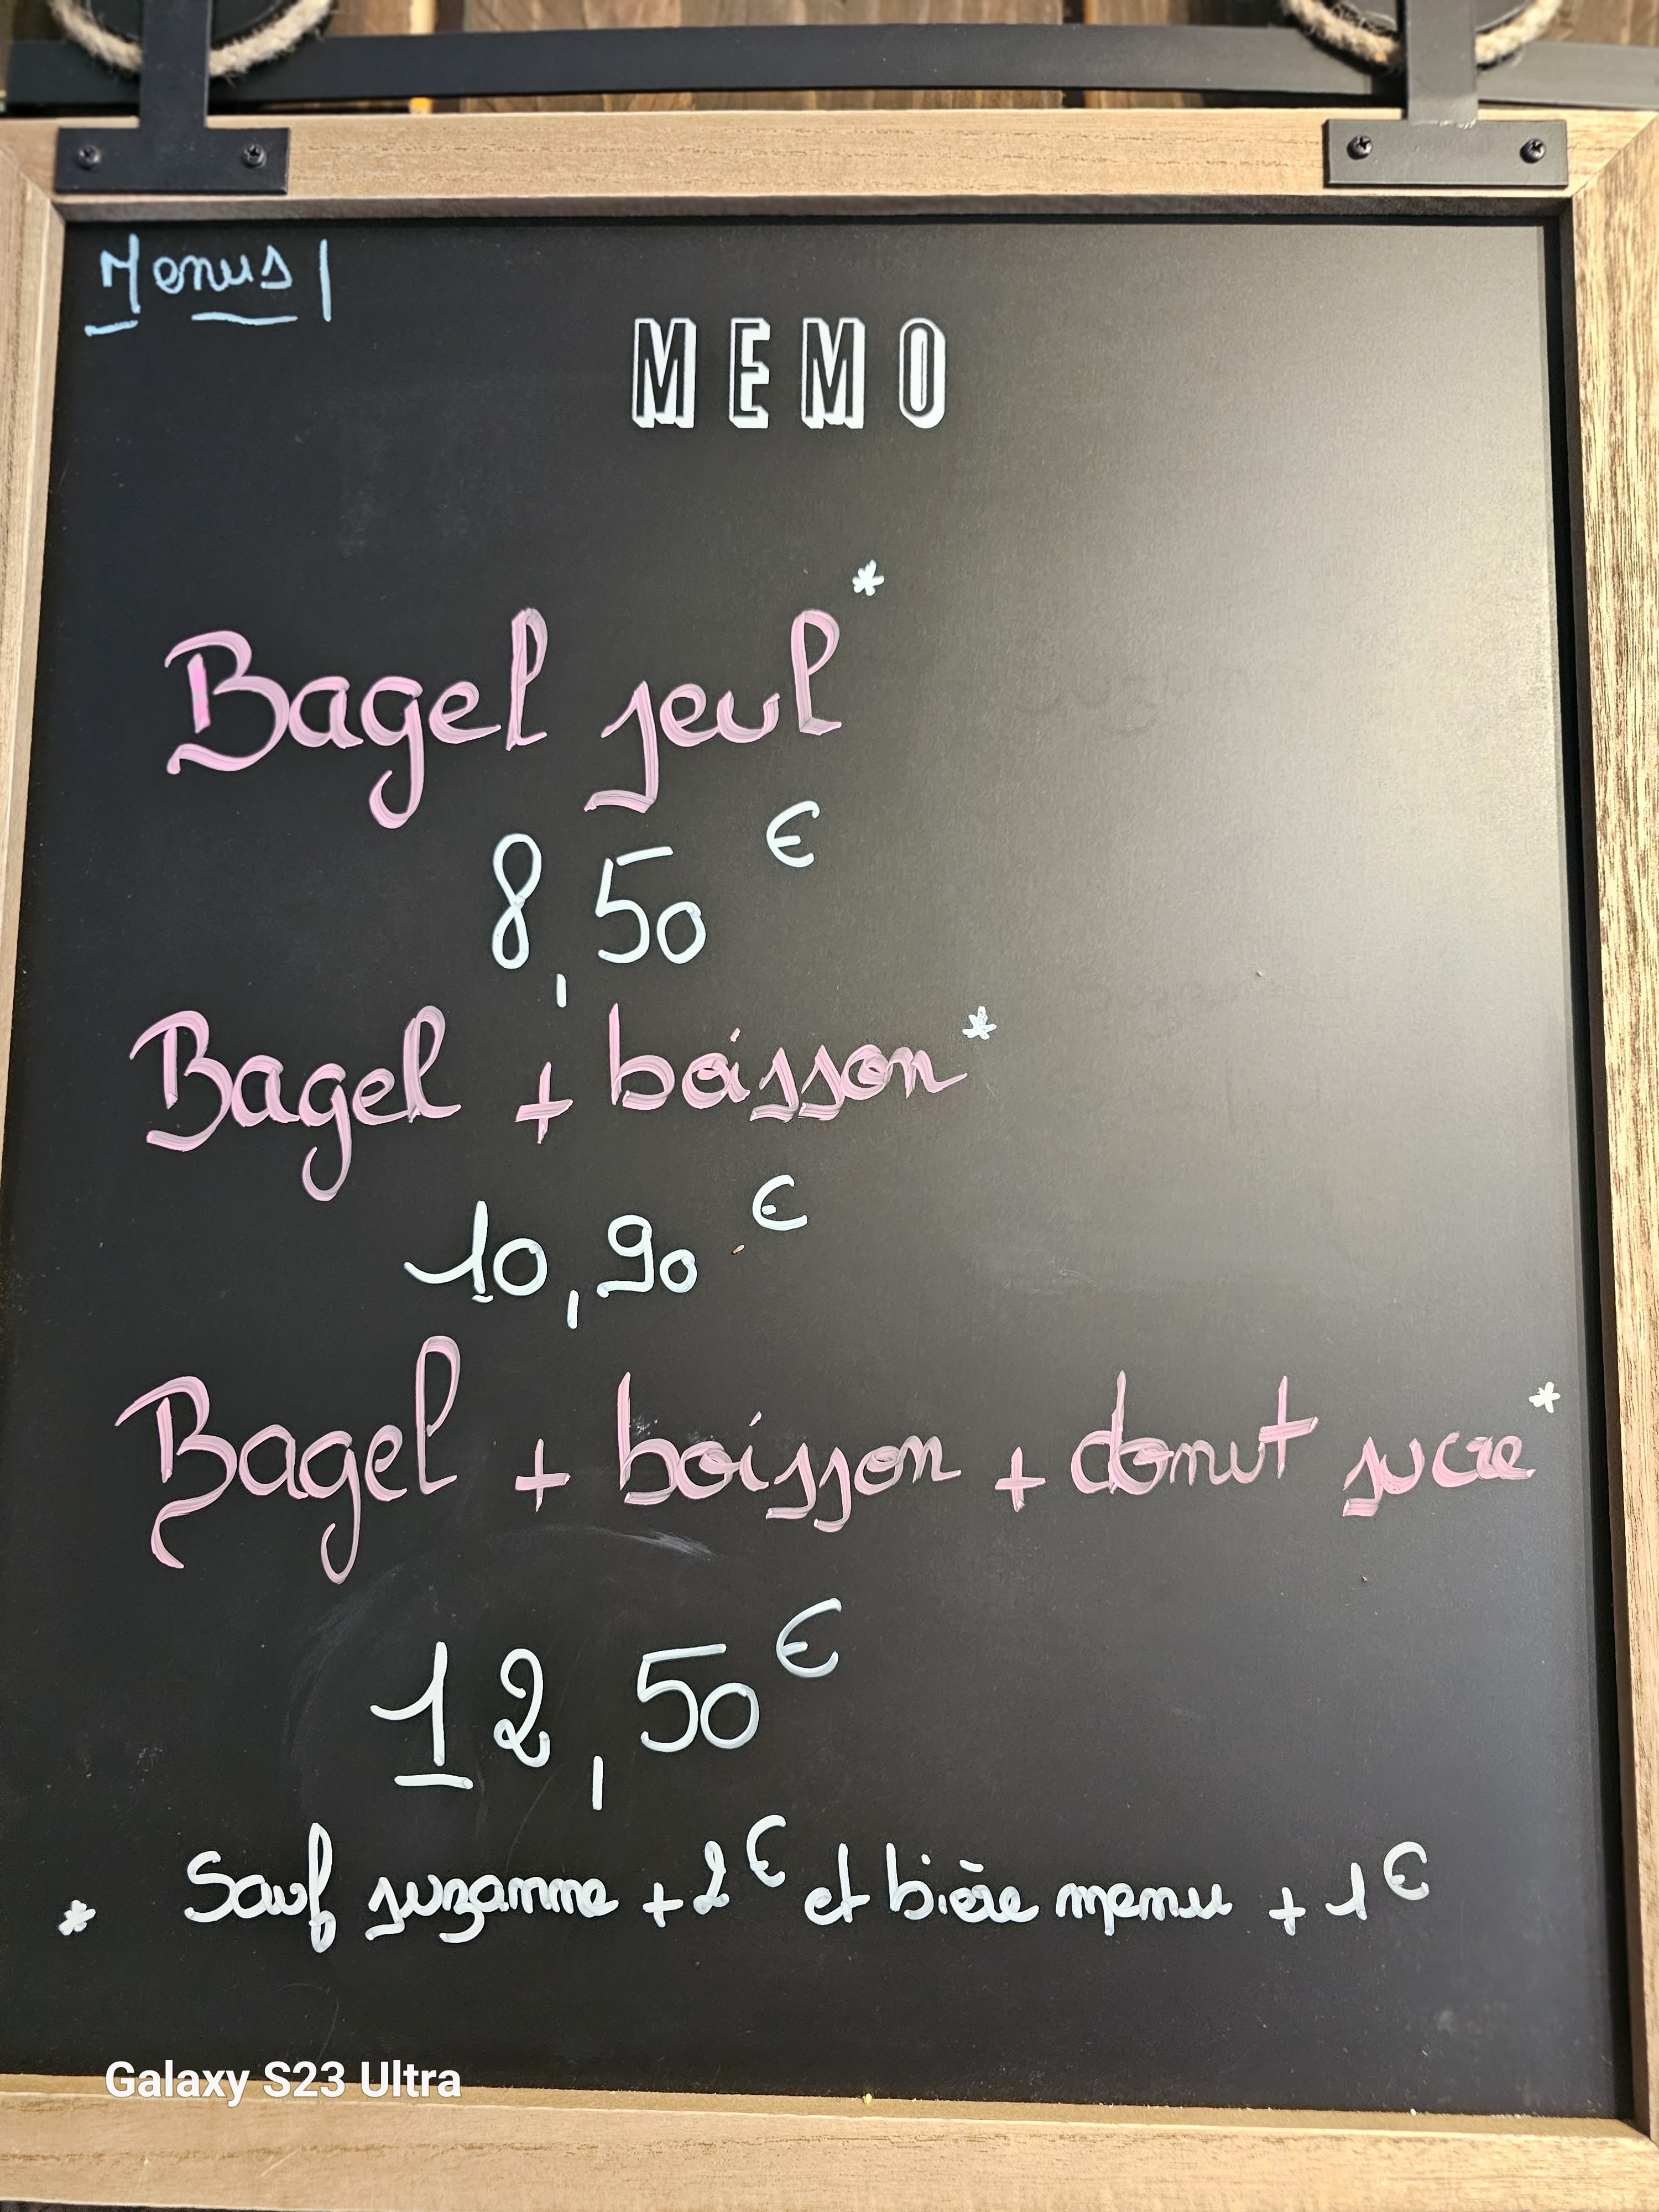 Menus |
MEMO
Bagel seul*
8,50 €
Bagel + boisson*
10,90 €
Bagel + boisson + donut sucre*
12,50 €
* Sauf suzanne + 2 € et bière menu + 1 €
Galaxy S23 Ultra